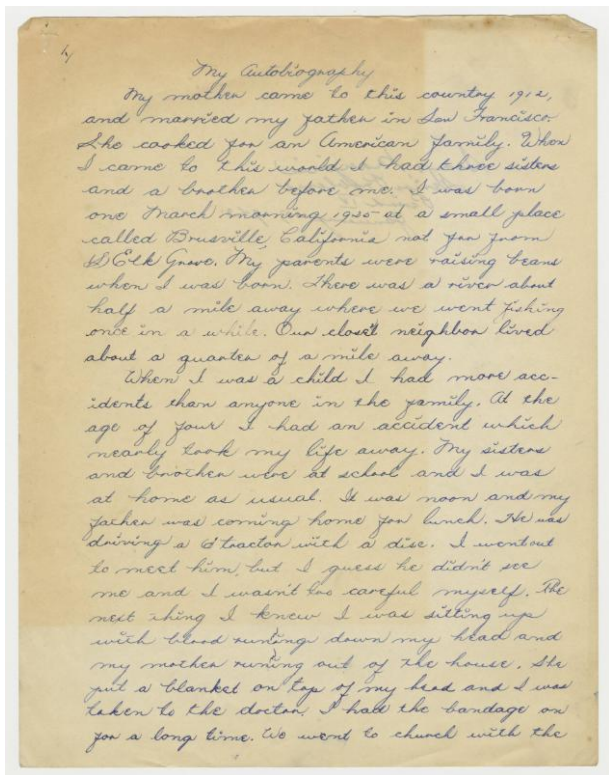 My Autobiography
My mother came to this country 1912,
and married my father in San Francisco.
She cooked for an American family. When
I came to this world I had three sisters
and a brother before me. I was born
one March morning 1925 at a small place
called Brusville, California not far from
Elk Grove. My parents were raising beans
when I was born. There was a river about
half a mile away where we went fishing
once in a while. Our closet neighbor lived
about a quarter of a mile away.
When I was a child I had more acc-
idents than anyone in the family. At the
age of four I had an accident which
nearly took my life away. My sisters
and brother were at school and I was
at home as usual. It was noon and my
father was coming home for lunch. He was
driving a tractor with a disc. I went out
to meet him, but I guess he didn't see
me and I wasn't too careful myself. The
nest thing I knew I was sitting up
with blood runing down my head and
my mother runing out of the house. She
put a blanket on top of my head and I was
taken to the doctor. I had the bandage on
for a long time. We went to church with the